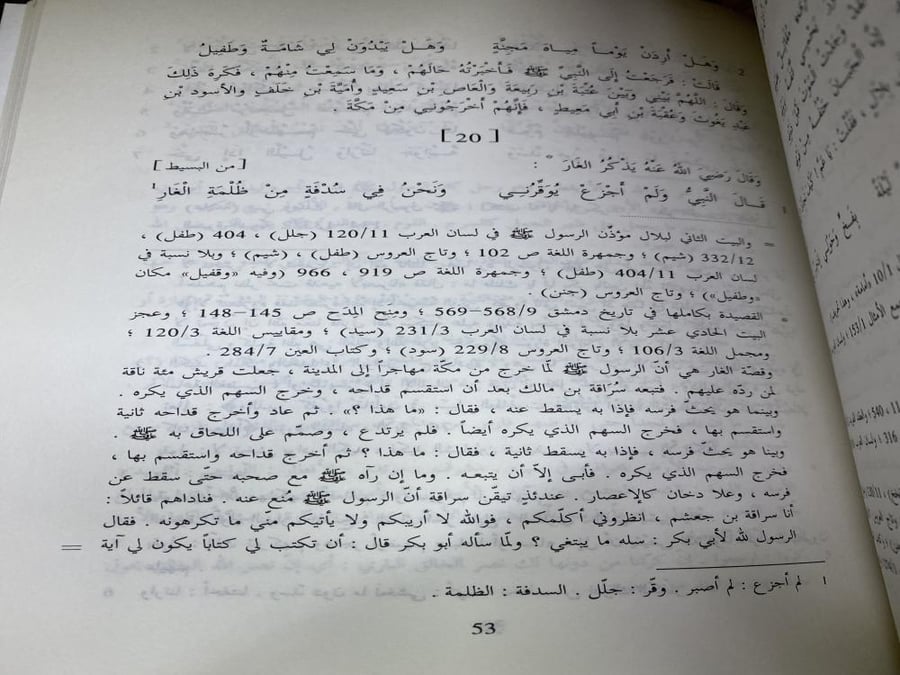 2 وَهَلْ أَرِدَنْ يَوْماً مِيَاهَ مَجَنَّةٍ وَهَلْ يَبْدُوَنْ لِي شَامَةٌ وَطَفِيلُ
قَالَتْ : فَرَجَعْتُ إلَى النَّبِيِّ ﷺ فَأَخْبَرْتُهُ حَالَهُمْ ، وَمَا سَمِعْتُ مِنْهُمْ ، فَكَرِهَ ذَلِكَ
وَقَالَ : اللَّهُمَّ بَيْنِي وَبَيْنَ عُتْبَةَ بْنِ رَبِيعَةَ وَالعَاصِ بْنِ سَعِيدٍ وَأُمَيَّةَ بْنِ خَلَفٍ وَالأسود بْنِ
عَبْدِ يَغُوثَ وَعُقْبَةَ بْنِ أبي مَعِيطٍ ، فَإنَّهُمْ أَخْرَجُونِي مِنْ مَكَّةَ .
[ 20 ]
وَقَالَ رَضِيَ اللَّهُ عَنْهُ يَذْكُرُ الغَارَ * : [من البسيط]
1 قَـالَ النَّبِيُّ وَلَمْ أَجْزَعْ يُوَقِّرُنِـي وَنَحْنُ فِي سُدْفَةٍ مِنْ ظُلْمَةِ الْغَارِ¹
= والبيت الثاني لبلال مؤذّن الرسول ﷺ في لسان العرب 120/11 (جلل) ، 404 (طفل) ،
332/12 (شيم) ؛ وجمهرة اللغة ص 102 ؛ وتاج العروس (طفل) ، (شيم) ؛ وبلا نسبة في
لسان العرب 404/11 (طفل) ؛ وجمهرة اللغة ص 919 ، 966 (وفيه «وقفيل» مكان
«وطفيل») ؛ وتاج العروس (جنن) .
* القصيدة بكاملها في تاريخ دمشق 568/9–569 ؛ ومِنح المِدَح ص 145–148 ؛ وعجز
البيت الحادي عشر بلا نسبة في لسان العرب 231/3 (سيد) ؛ ومقاييس اللغة 120/3 ؛
ومجمل اللغة 106/3 ؛ وتاج العروس 229/8 (سود) ؛ وكتاب العين 284/7 .
وقصّة الغار هي أنّ الرسول ﷺ لمّا خرج من مكّة مهاجراً إلى المدينة ، جعلت قريش مئة ناقة
لمن ردّه عليهم . فتبعه سُرَاقة بن مالك بعد أن استقسم قداحه ، وخرج السهم الذي يكره .
وبينما هو يحثّ فرسه فإذا به يسقط عنه ، فقال : «ما هذا ؟» . ثم عاد وأخرج قداحه ثانية
واستقسم بها ، فخرج السهم الذي يكره أيضاً . فلم يرتدع ، وصمّم على اللحاق به ﷺ .
وبينا هو يحثّ فرسه ، فإذا به يسقط ثانية ، فقال : ما هذا ؟ ثم أخرج قداحه واستقسم بها ،
فخرج السهم الذي يكره . فأبـى إلاّ أن يتبعـه . وما إن رآه ﷺ مع صحبه حتّى سقط عن
فرسه ، وعلا دخان كالإعصار . عندئذٍ تيقّن سراقة أنّ الرسول ﷺ مُنع عنه . فناداهم قائلاً :
أنا سراقة بن جعشم ، انظروني أكلّمكم ، فوالله لا أريبكم ولا يأتيكم مني ما تكرهونه . فقال
الرسول لله لأبي بكر : سله ما يبتغي ؟ ولمّا سأله أبو بكر قال : أن تكتب لي كتاباً يكون لي آية =
1 لم أجزع : لم أصبر . وقّر : جلّل . السدفة : الظلمة .
53